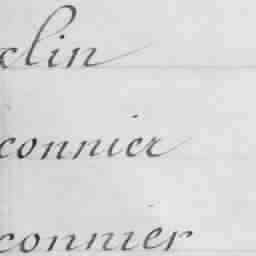 elin
connier
connier